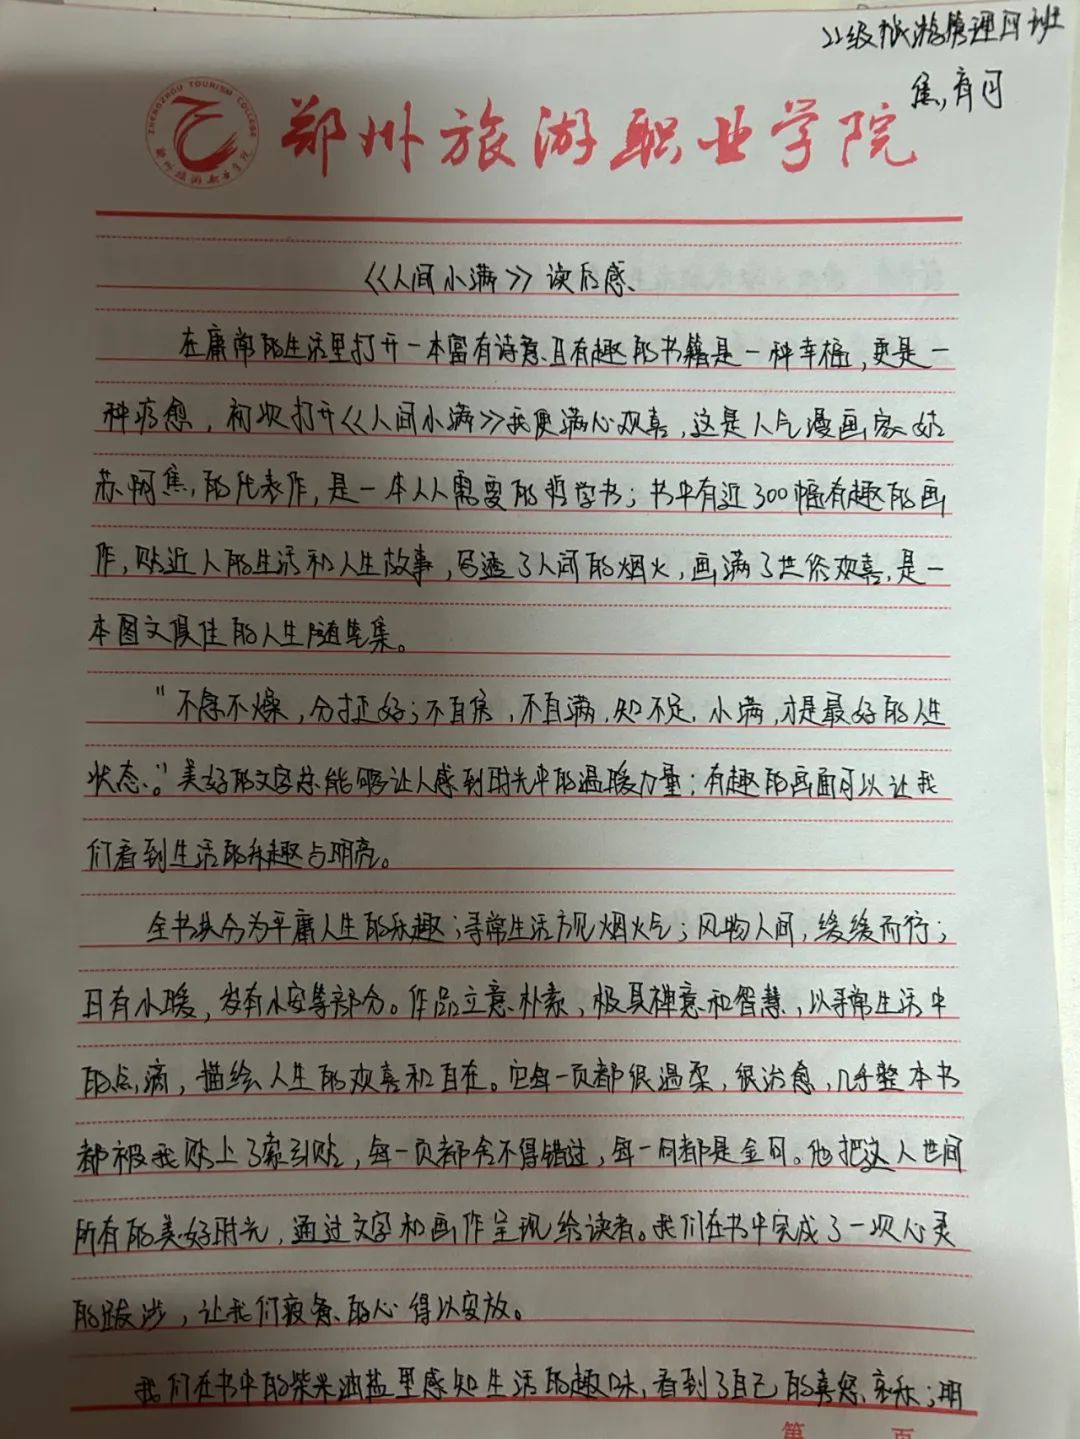 22级旅游管理四班
焦
ZHENGZHOU TOURISM COLLEGE
郑州旅游职业学院
郑州旅游职业学院
《人间小满》读后感
在庸常的生活里打开一本富有诗意且有趣的书籍是一种幸福,更是一
种疗愈,初次打开《人间小满》我便满心欢喜,这是人气漫画家姑
苏阿焦的代表作,是一本人人需要的哲学书;书中有近300幅有趣的画
作,贴近人的生活和人生故事,写透了人间的烟火,画满了世俗欢喜,是一
本图文俱佳的人生随笔集。
"不急不燥,分才正好;不自傲,不自满,知不足,小满,才是最好的人生
状态。"美好的文字总能够让人感到时光中的温暖力量;有趣的画面可以让我
们看到生活的乐趣与明亮。
全书共分为平庸人生的乐趣;寻常生活方见烟火气;风物人间,缓缓而行;
日有小暖,岁有小安等部分。作品立意朴素,极具禅意和智慧,以寻常生活中
的点滴,描绘人生的欢喜和自在。它每一页都很温柔,很治愈,几乎整本书
都被我贴上了索引贴,每一页都舍不得错过,每一句都是金句。他把这人世间
所有的美好时光,通过文字和画作呈现给读者。我们在书中完成了一次心灵
的跋涉,让我们疲惫的心得以安放。
我们在书中的柴米油盐里感知生活的趣味,看到了自己的喜怒哀乐;明
第 页